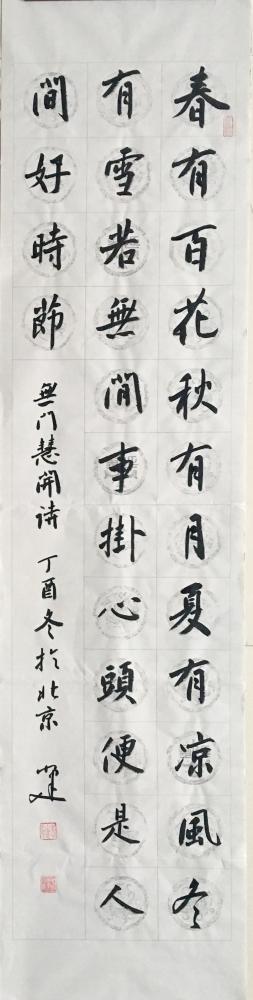 春有百花秋有月夏有凉風冬
有雪若無閒事掛心頭便是人
間好時節
無门慧開诗 丁酉冬於北京